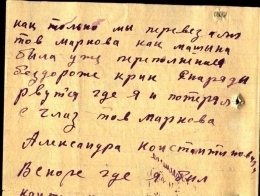 как только мы перевезли
тов Маркова как машына
была уже переполнена
Бездороже крик Снаряды
рвутся где я и потерял
с глаз тов Маркова
Александра Константинович
Вскоре где я был